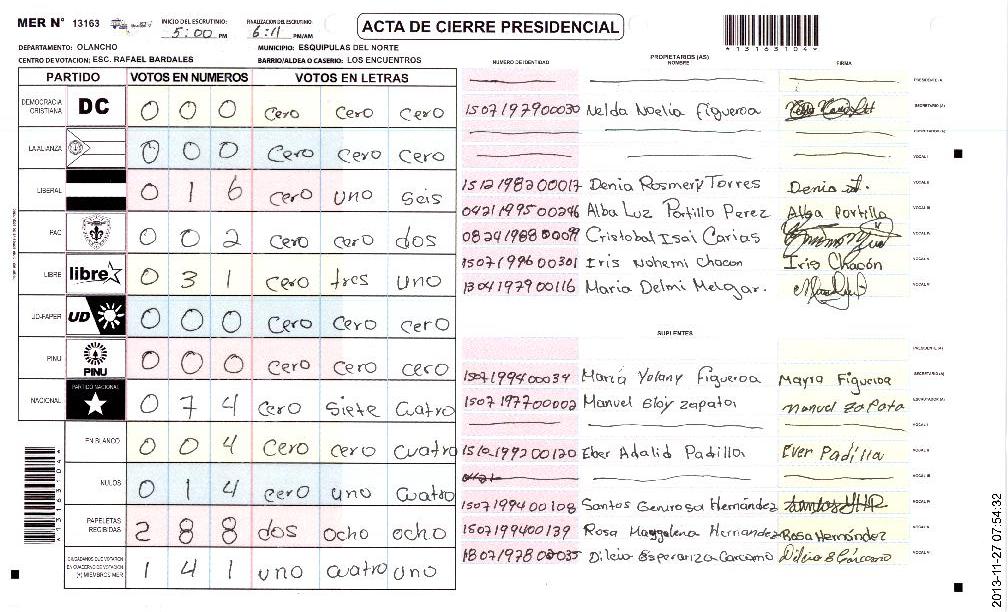 MER N° 13163 INICIO DEL ESCRUTINIO: 5:00 PM FINALIZACION DEL ESCRUTINIO: 6:11 PM/AM ACTA DE CIERRE PRESIDENCIAL
*13163104*
DEPARTAMENTO: OLANCHO MUNICIPIO: ESQUIPULAS DEL NORTE
CENTRO DE VOTACION: ESC. RAFAEL BARDALES BARRIO/ALDEA O CASERIO: LOS ENCUENTROS
PARTIDO VOTOS EN NUMEROS VOTOS EN LETRAS
DEMOCRACIA CRISTIANA DC 0 0 0 cero cero cero
LA ALIANZA 0 0 0 cero cero cero
LIBERAL 0 1 6 cero uno seis
PAC 0 0 2 cero cero dos
LIBRE libre 0 3 1 cero tres uno
UD-FAPER UD 0 0 0 cero cero cero
PINU PINU 0 0 0 cero cero cero
NACIONAL PARTIDO NACIONAL 0 7 4 cero siete cuatro
EN BLANCO 0 0 4 cero cero cuatro
NULOS 0 1 4 cero uno cuatro
PAPELETAS RECIBIDAS 2 8 8 dos ocho ocho
CIUDADANOS QUE VOTARON EN CUADERNO DE VOTACION (+) MIEMBROS MER 1 4 1 uno cuatro uno
*13163104*
PROPIETARIOS (AS)
NUMERO DE IDENTIDAD NOMBRE FIRMA
PRESIDENTE (A)
1507197900030 Nelda Noelia Figueroa SECRETARIO (A)
ESCRUTADOR (A)
VOCAL I
1512198200017 Denia Rosmery Torres Denia VOCAL II
0421199500246 Alba Luz Portillo Perez Alba Portillo VOCAL III
Cristobal Isai Carias VOCAL IV
1507199600301 Iris Nohemi Chacon Iris Chacón VOCAL V
1304197900116 Maria Delmi Melgar. VOCAL VI
SUPLENTES
PRESIDENTE (A)
1507199400034 Maria Yolany Figueroa Mayra Figueroa SECRETARIO (A)
1507197700002 Manuel Eloy Zapata Manuel Zapata ESCRUTADOR (A)
VOCAL I
1510199200120 Eber Adalid Padilla Ever Padilla VOCAL II
VOCAL III
1507199400108 Santos Generosa Hernández VOCAL IV
1507199400139 Rosa Maggalena Hernandez Rosa Hernández VOCAL V
Dilcia Esperanza Carcamo Dilcia E Cárcamo VOCAL VI
2013-11-27 07:54:32